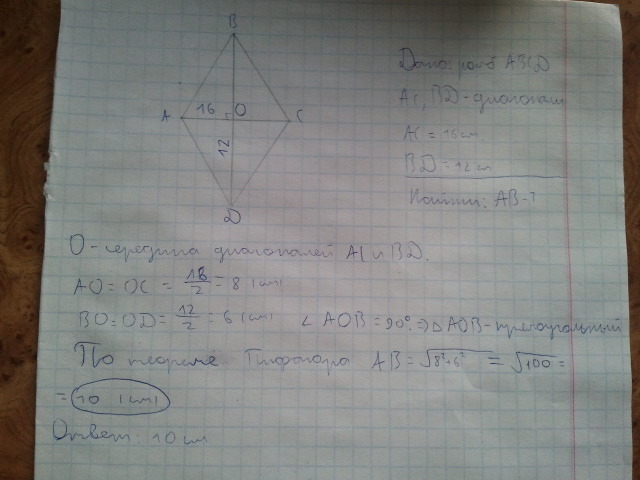 B
Дано: ромб ABCD
A 16 O C
AC, BD - диагонали
12
AC = 16 см
BD = 12 см
D
Найти: AB - ?
O - середина диагоналей AC и BD.
AO = OC = 16/2 = 8 (см)
BO = OD = 12/2 = 6 (см) ∠ AOB = 90° ⇒ △ AOB - прямоугольный
По теореме Пифагора AB = √8²+6² = √100 =
= 10 (см)
Ответ: 10 см